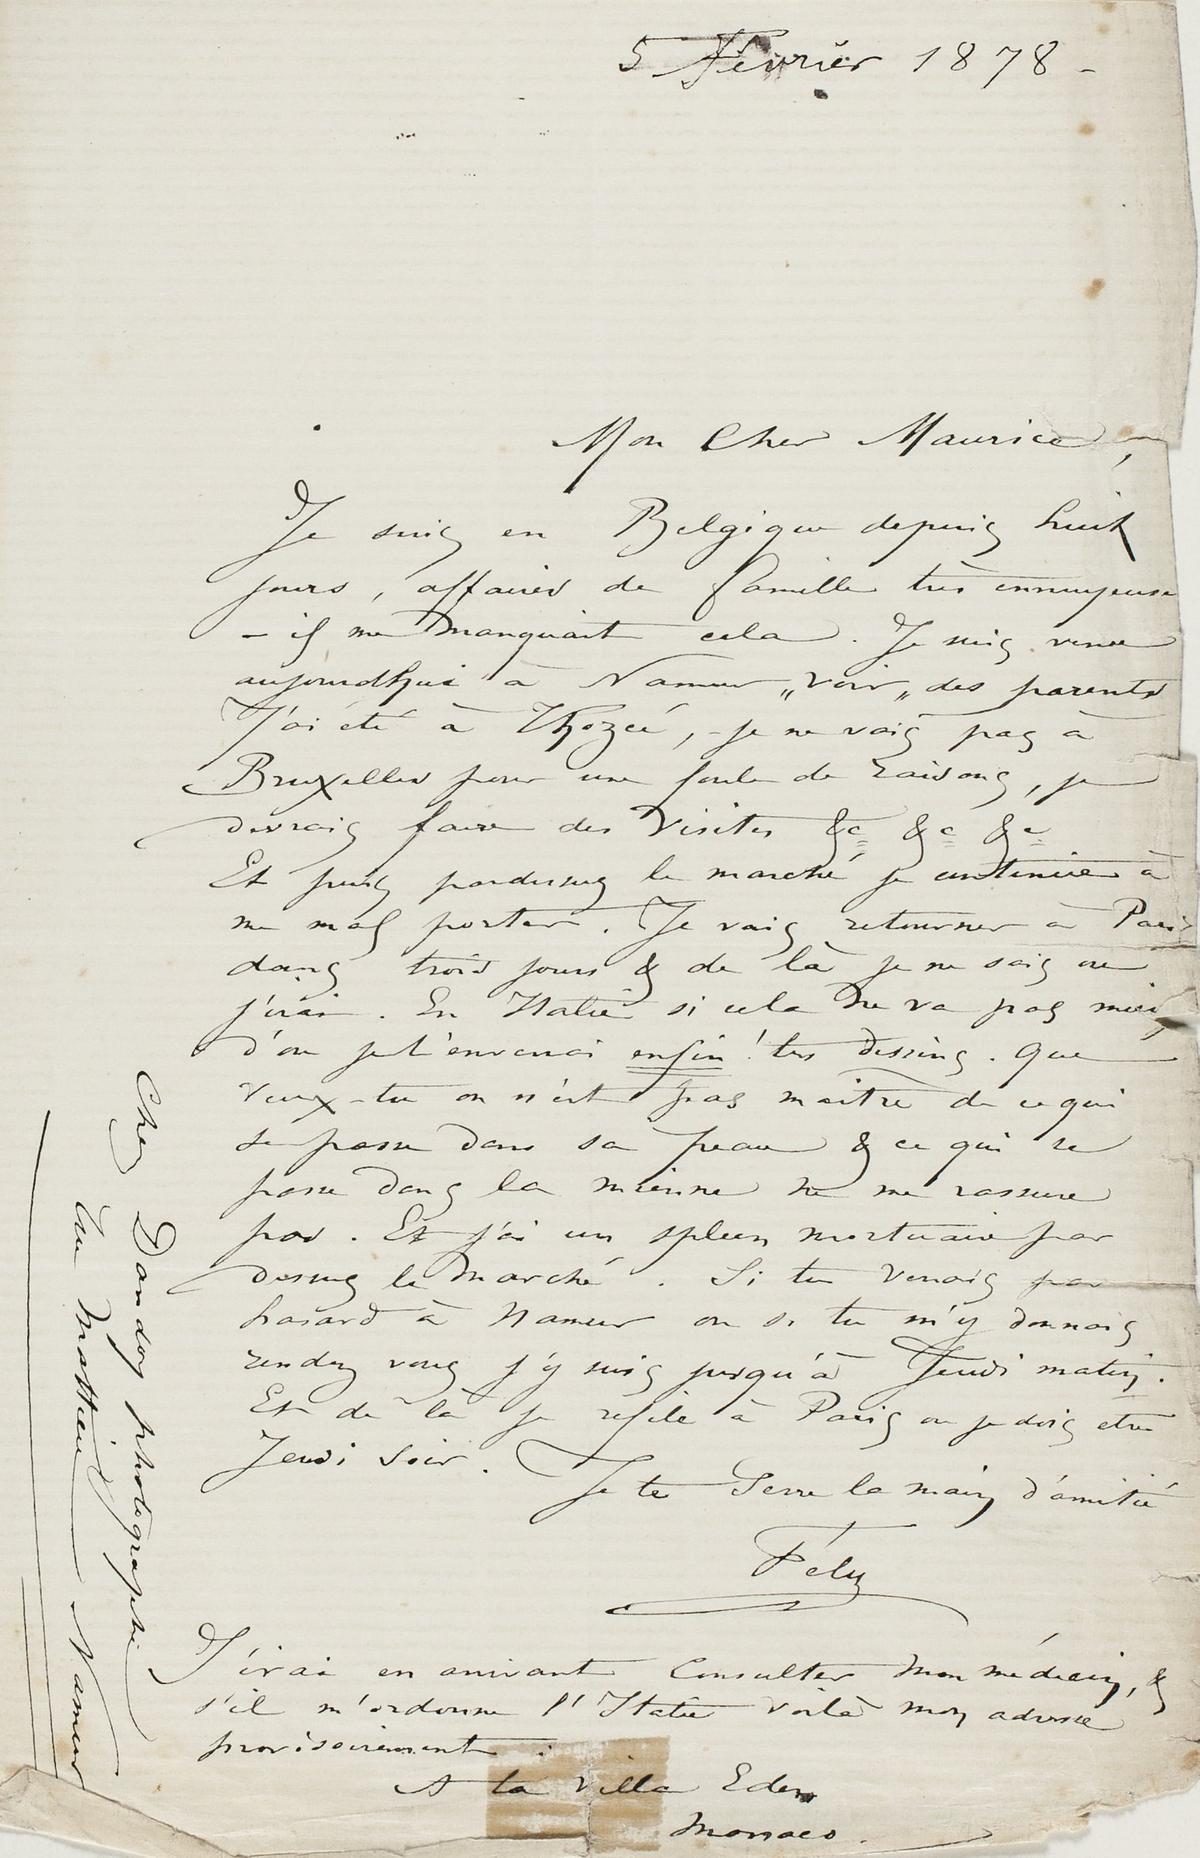 5 Février 1878 -
Mon Cher Maurice,
Je suis en Belgique depuis huit
jours, affaires de famille très ennuyeuse
- il me manquait cela. Je suis venu
aujourdhui à Namur „voir„ des parents
J'ai été à Thozée, - je ne vais pas à
Bruxelles pour une foule de raisons, je
devrais faire des visites &c &c &c
Et puis pardessus le marché je continue à
me mal porter. Je vais retourner à Paris
dans trois jours & de là je ne sais où
j'irai. En Italie si cela ne va pas mieux
d'où je t'enverrai enfin ! tes dessins. Que
veux-tu on n'est pas maître de ce qui
se passe dans sa peau & ce qui se
passe dans la mienne ne me rassure
pas. Et j'ai un spleen mortuaire par
dessus le marché. Si tu venais par
hasard à Namur ou si tu m'y donnais
rendez vous j'y suis jusqu'à Jeudi matin.
Et de là je refile à Paris où je dois être
Jeudi soir.
Je te serre la main d'amitié
Fély
J'irai en arrivant consulter mon médecin, &
s'il m'ordonne l'Italie voilà mon adresse
provisoirement :
A la Villa Eden
Monaco.
Chez Dandoy photographe
Namur